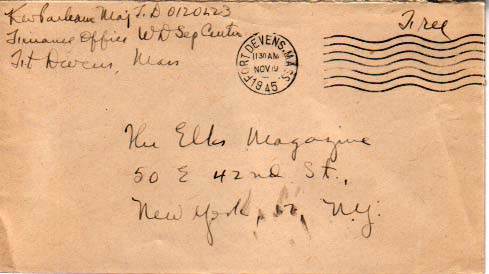 Maj F.D 0120223
Finance Office W D Sep Center
Ft Devens, Mass
Free
FORT DEVENS, MASS.
1130 AM
NOV 19
1945
The Elks Magazine
50 E 42nd St.,
New York, 17, N.Y.